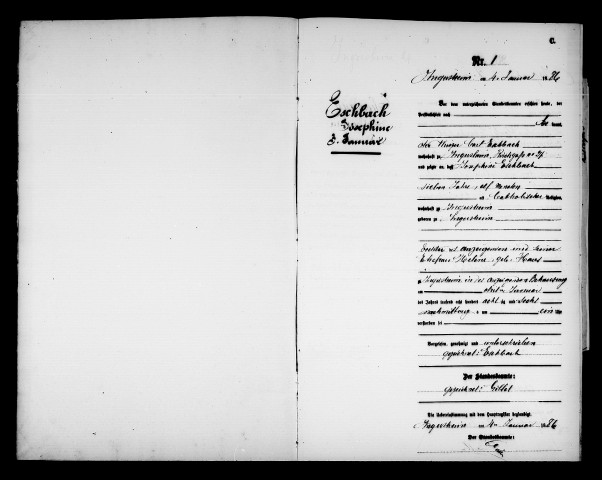 C.
Nr. 1
Ingersheim am 4. Januar 1886
Eschbach
Josephine
3. Januar
Vor dem unterzeichneten Standesbeamten erschien heute, der
Persönlichkeit nach
kannt,
der Winzer Carl Eschbach
wohnhaft zu Ingersheim
und zeigte an, daß Josephine Eschbach
sieben Jahre elf Monaten
alt, katholischer Religion,
wohnhaft zu Ingersheim
geboren zu Ingersheim
Tochter des Anzeigenden und seiner
Ehefrau Helene geb. Haus
zu Ingersheim in des Anzeigenden Behausung
am dritten Januar
des Jahres tausend acht hundert acht zig und sechs
nachmittags um ein Uhr
verstorben sei
Vorgelesen, genehmigt und unterschrieben
gezeichnet: Eschbach
Der Standesbeamte:
gezeichnet: Gillet
Die Uebereinstimmung mit dem Hauptregister beglaubigt.
Ingersheim am 4. Januar 1886
Der Standesbeamte: